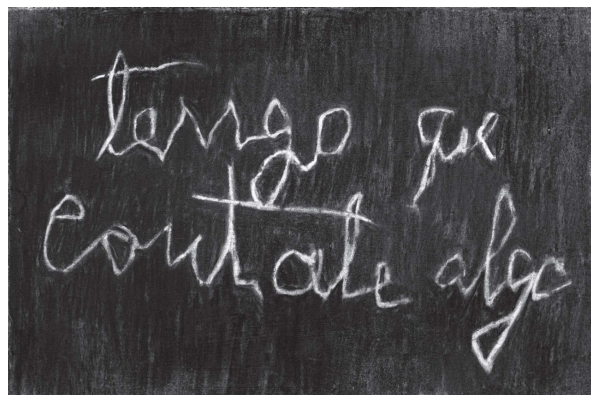 tengo que
contate algo